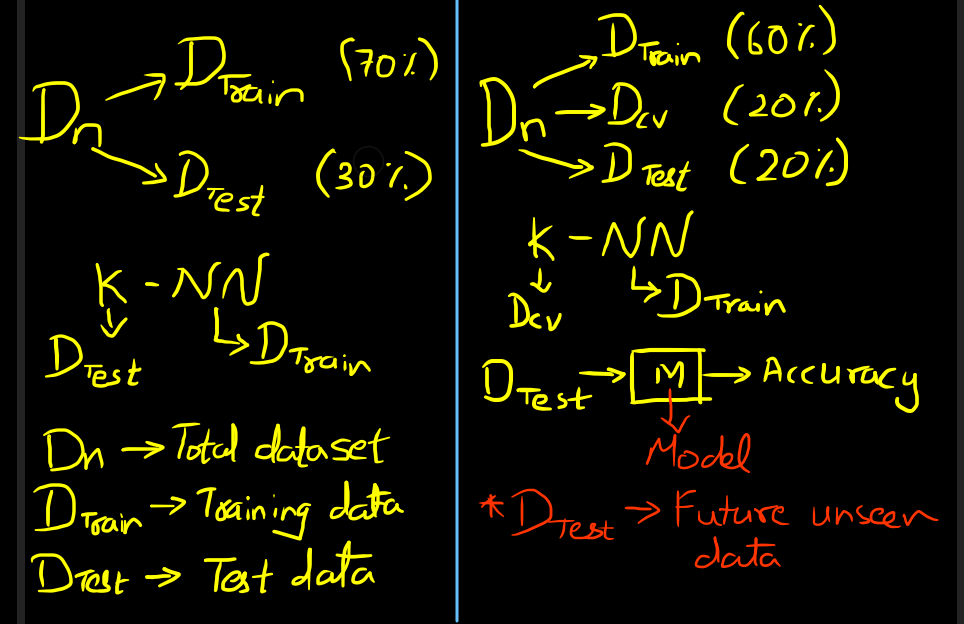 Dn → DTrain (70%)
→ DTest (30%)
K - NN
↓ ↳ DTrain
DTest
Dn → Total dataset
DTrain → Training data
DTest → Test data
Dn → DTrain (60%)
→ Dcv (20%)
→ DTest (20%)
K - NN
↓ ↳ DTrain
Dcv
DTest → M → Accuracy
↓
Model
* DTest → Future unseen
data